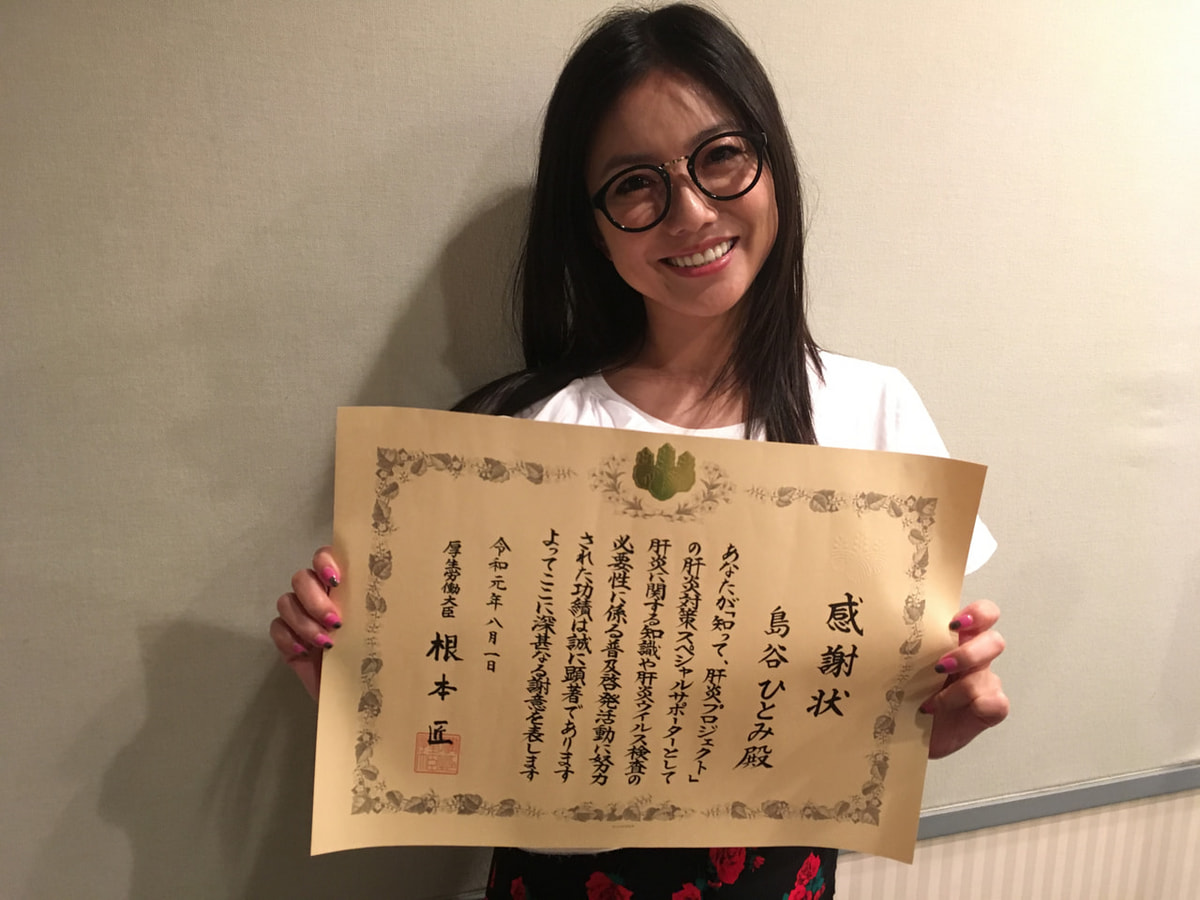 感謝状
島谷ひとみ殿
あなたが「知って、肝炎プロジェクト」
の肝炎対策スペシャルサポーターとして
肝炎に関する知識や肝炎ウイルス検査の
必要性に係る普及啓発活動に努力
された功績は誠に顕著であります
よってここに深甚なる謝意を表します
令和元年八月一日
厚生労働大臣 根本匠